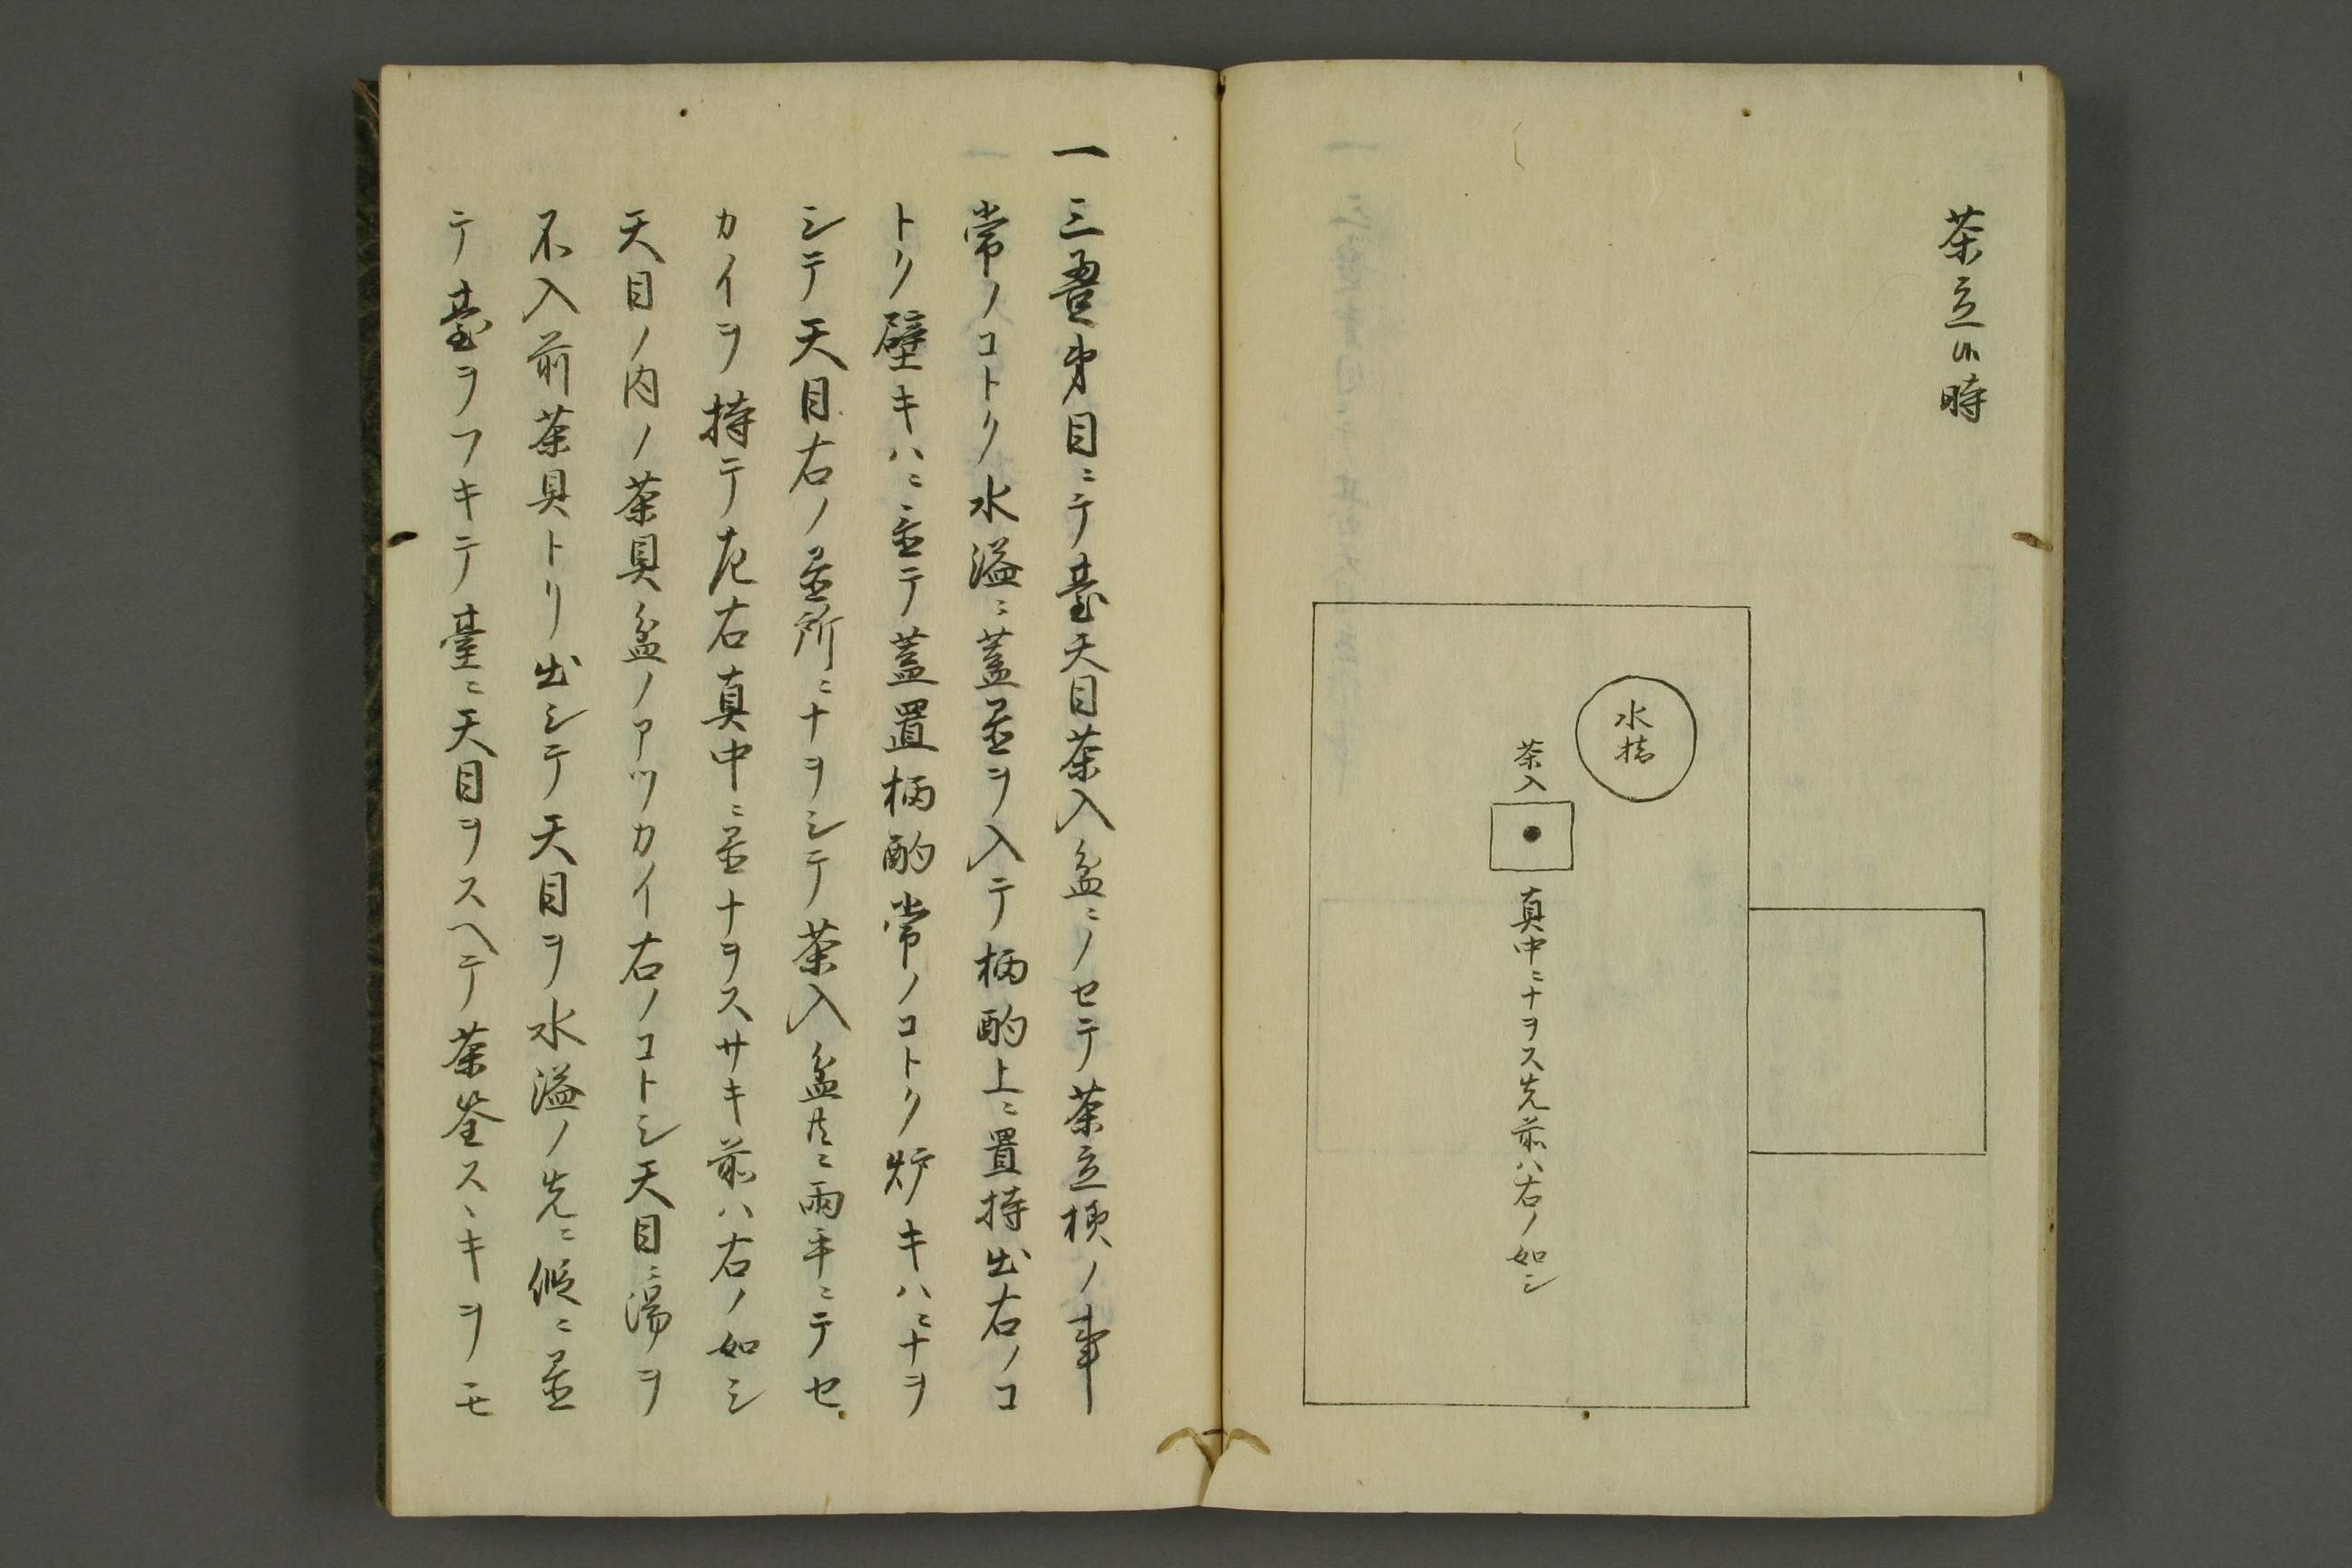 茶立ル時
水指
茶入
真中ニナヲス先前ハ右ノ如シ
一三畳目ニテ臺天目茶入盆ニノセテ茶立様ノ事
常ノコトク水溢ニ蓋置ヲ入テ柄酌上ニ置持出右ノコ
トク壁キハニ置テ蓋置柄酌常ノコトク炉キハニナヲ
シテ天目右ノ置所ニナヲシテ茶入盆共ニ両手ニテセ
カイヲ持テ左右真中ニ置ナヲスサキ前ハ右ノ如シ
天目ノ内ノ茶具盆ノアツカイ右ノコトシ天目ニ湯ヲ
不入前茶具トリ出シテ天目ヲ水溢ノ先ニ仮ニ置
テ臺ヲフキテ臺ニ天目ヲスヘテ茶筌スヽキヲモ